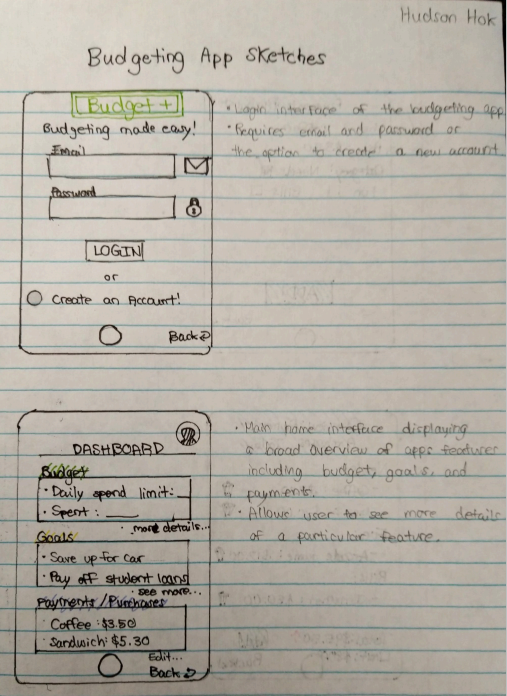 Hudson Hok
Budgeting App Sketches
Budget +
Budgeting made easy!
Email
Password
LOGIN
or
Create an Account!
Back
• Login interface of the budgeting app
• Requires email and password or
the option to create a new account
DASHBOARD
Budget
• Daily spend limit: __
• Spent: ____
• more details...
Goals
• Save up for car
• Pay off student loans
• see more...
Payments / Purchases
• Coffee: $3.50
• Sandwich: $5.30
Edit...
Back
• Main home interface displaying
a broad overview of apps features
including budget, goals, and
payments.
• Allows user to see more details
of a particular feature.